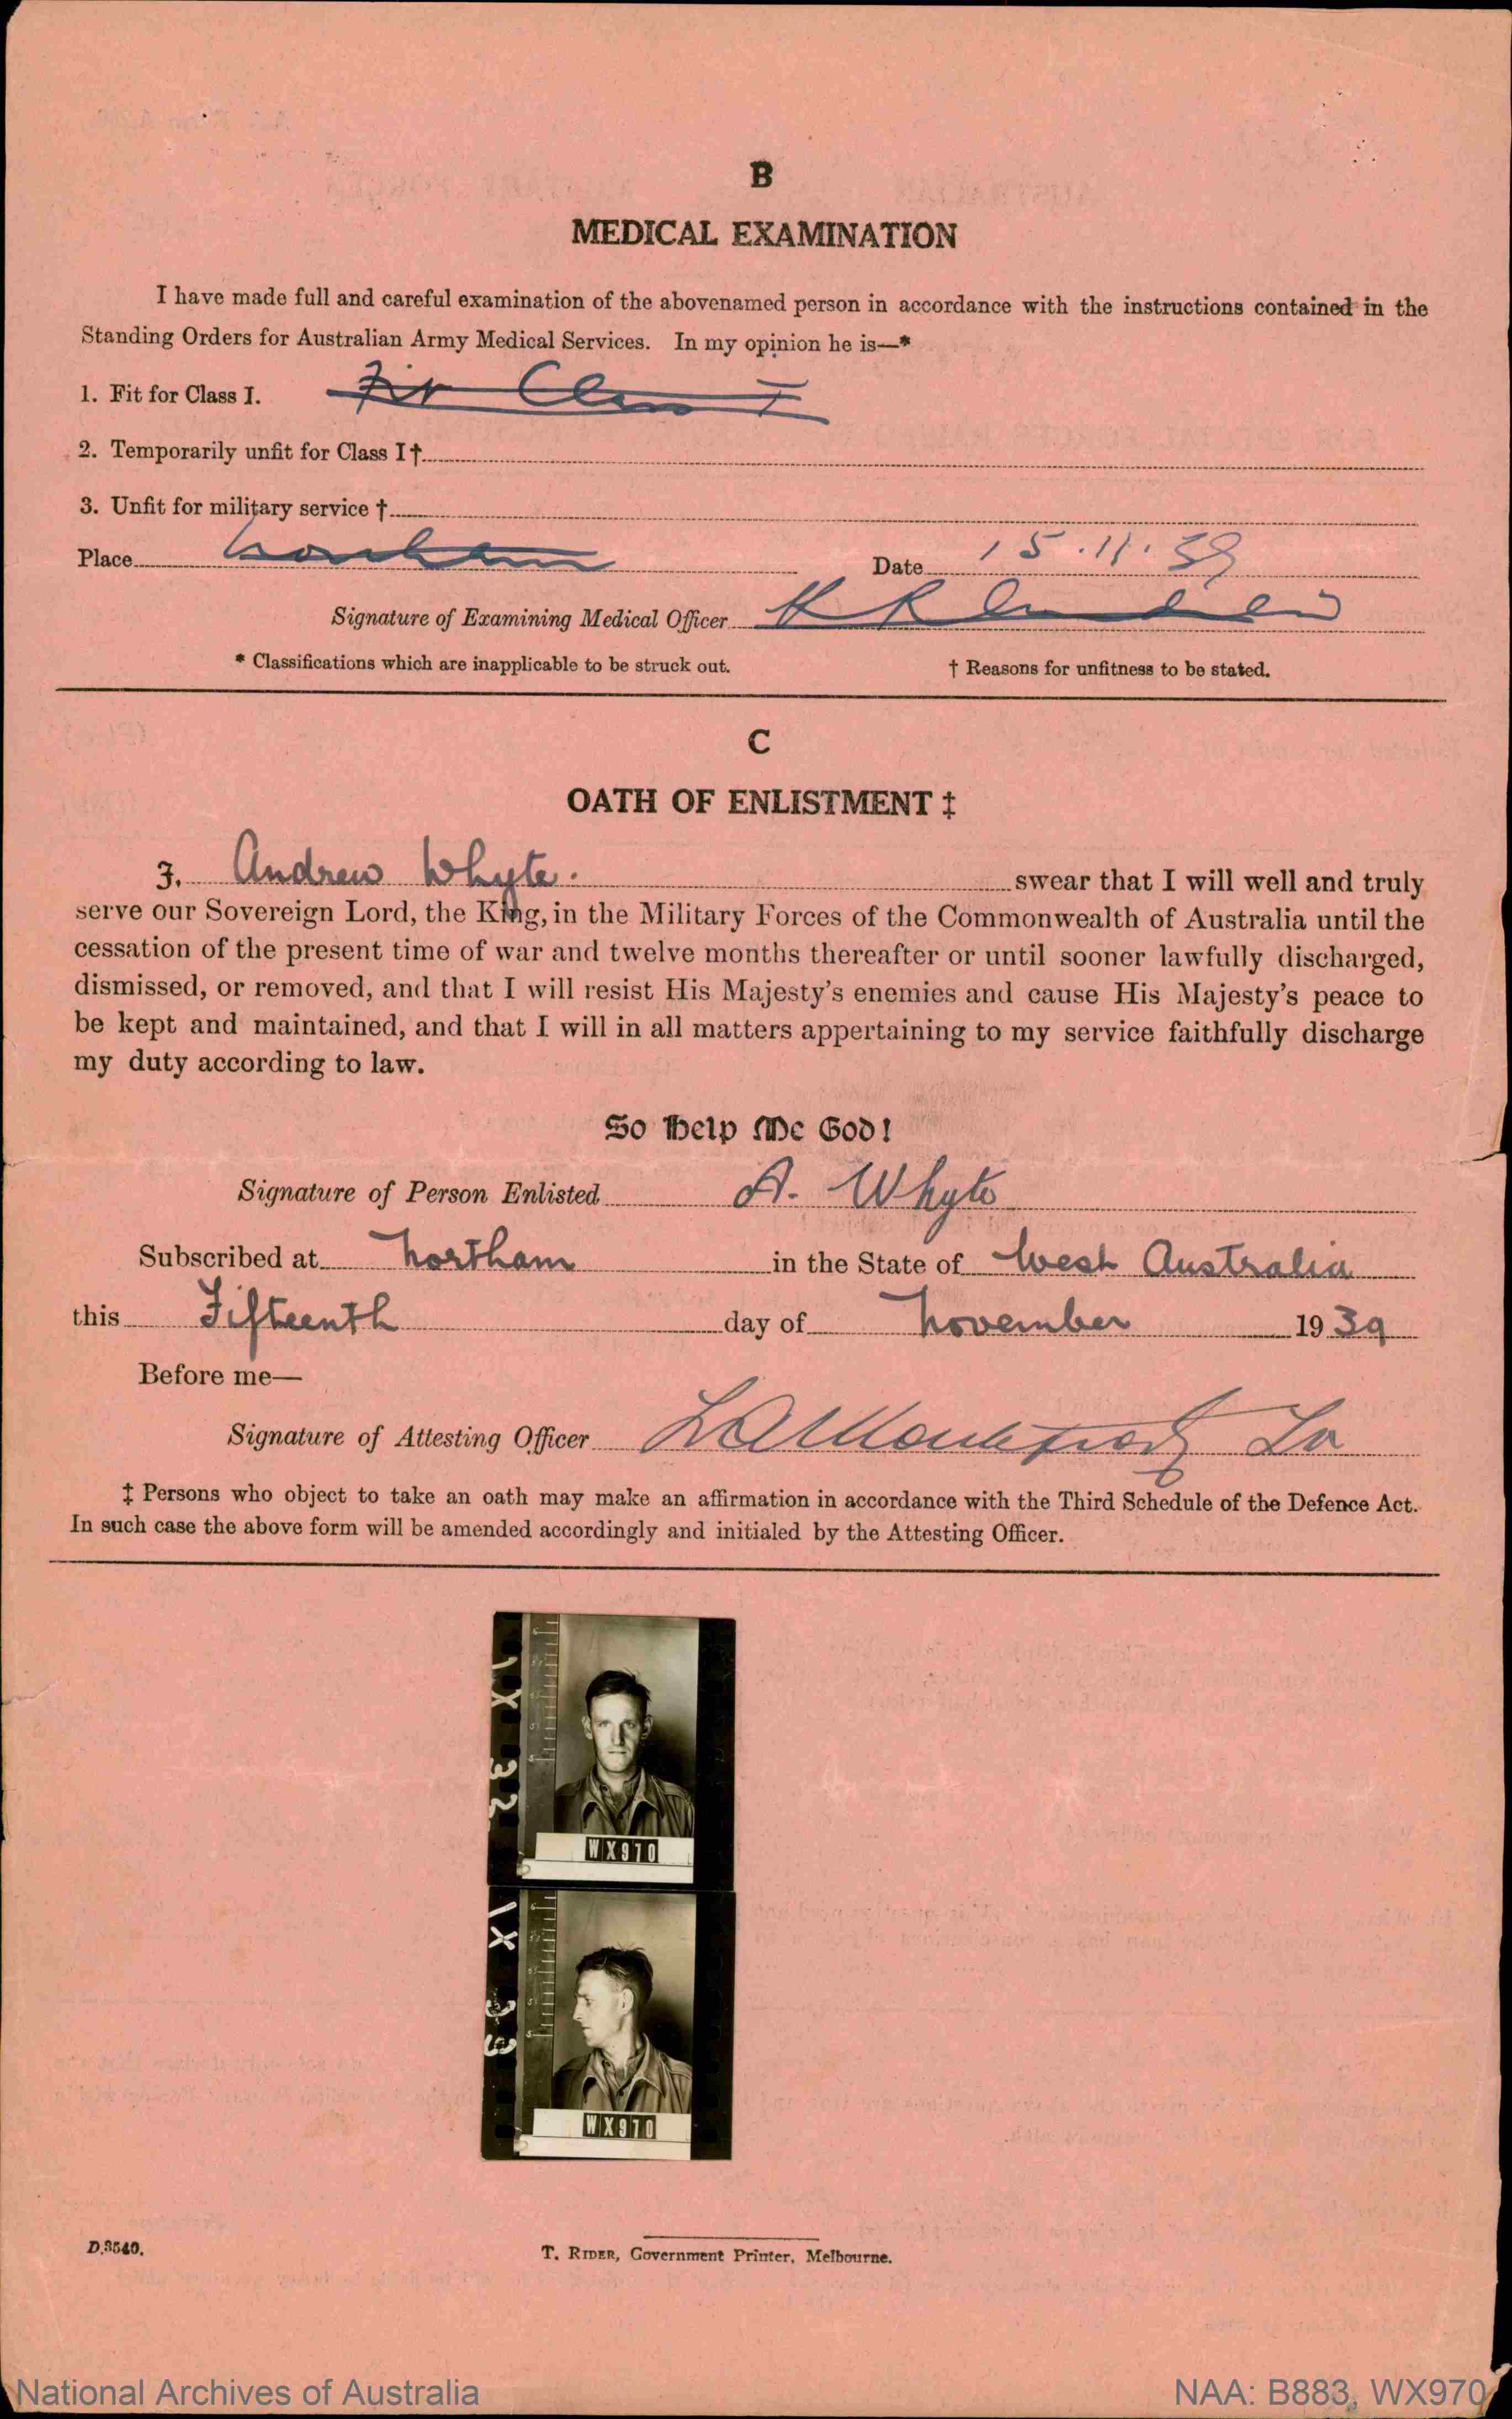 B
MEDICAL EXAMINATION
I have made full and careful examination of the abovenamed person in accordance with the instructions contained in the
Standing Orders for Australian Army Medical Services. In my opinion he is—*
1. Fit for Class I. Fit Class I
2. Temporarily unfit for Class I †
3. Unfit for military service †
Place Northam Date 15.11.39
Signature of Examining Medical Officer
* Classifications which are inapplicable to be struck out. † Reasons for unfitness to be stated.
C
OATH OF ENLISTMENT ‡
I, Andrew Whyte. swear that I will well and truly
serve our Sovereign Lord, the King, in the Military Forces of the Commonwealth of Australia until the
cessation of the present time of war and twelve months thereafter or until sooner lawfully discharged,
dismissed, or removed, and that I will resist His Majesty's enemies and cause His Majesty's peace to
be kept and maintained, and that I will in all matters appertaining to my service faithfully discharge
my duty according to law.
So Help Me God!
Signature of Person Enlisted A. Whyte
Subscribed at Northam in the State of West Australia
this Fifteenth day of November 1939
Before me—
Signature of Attesting Officer
‡ Persons who object to take an oath may make an affirmation in accordance with the Third Schedule of the Defence Act.
In such case the above form will be amended accordingly and initialed by the Attesting Officer.
1X 32
WX970
1X 33
WX970
D.3540.
T. RIDER, Government Printer, Melbourne.
National Archives of Australia NAA: B883, WX970